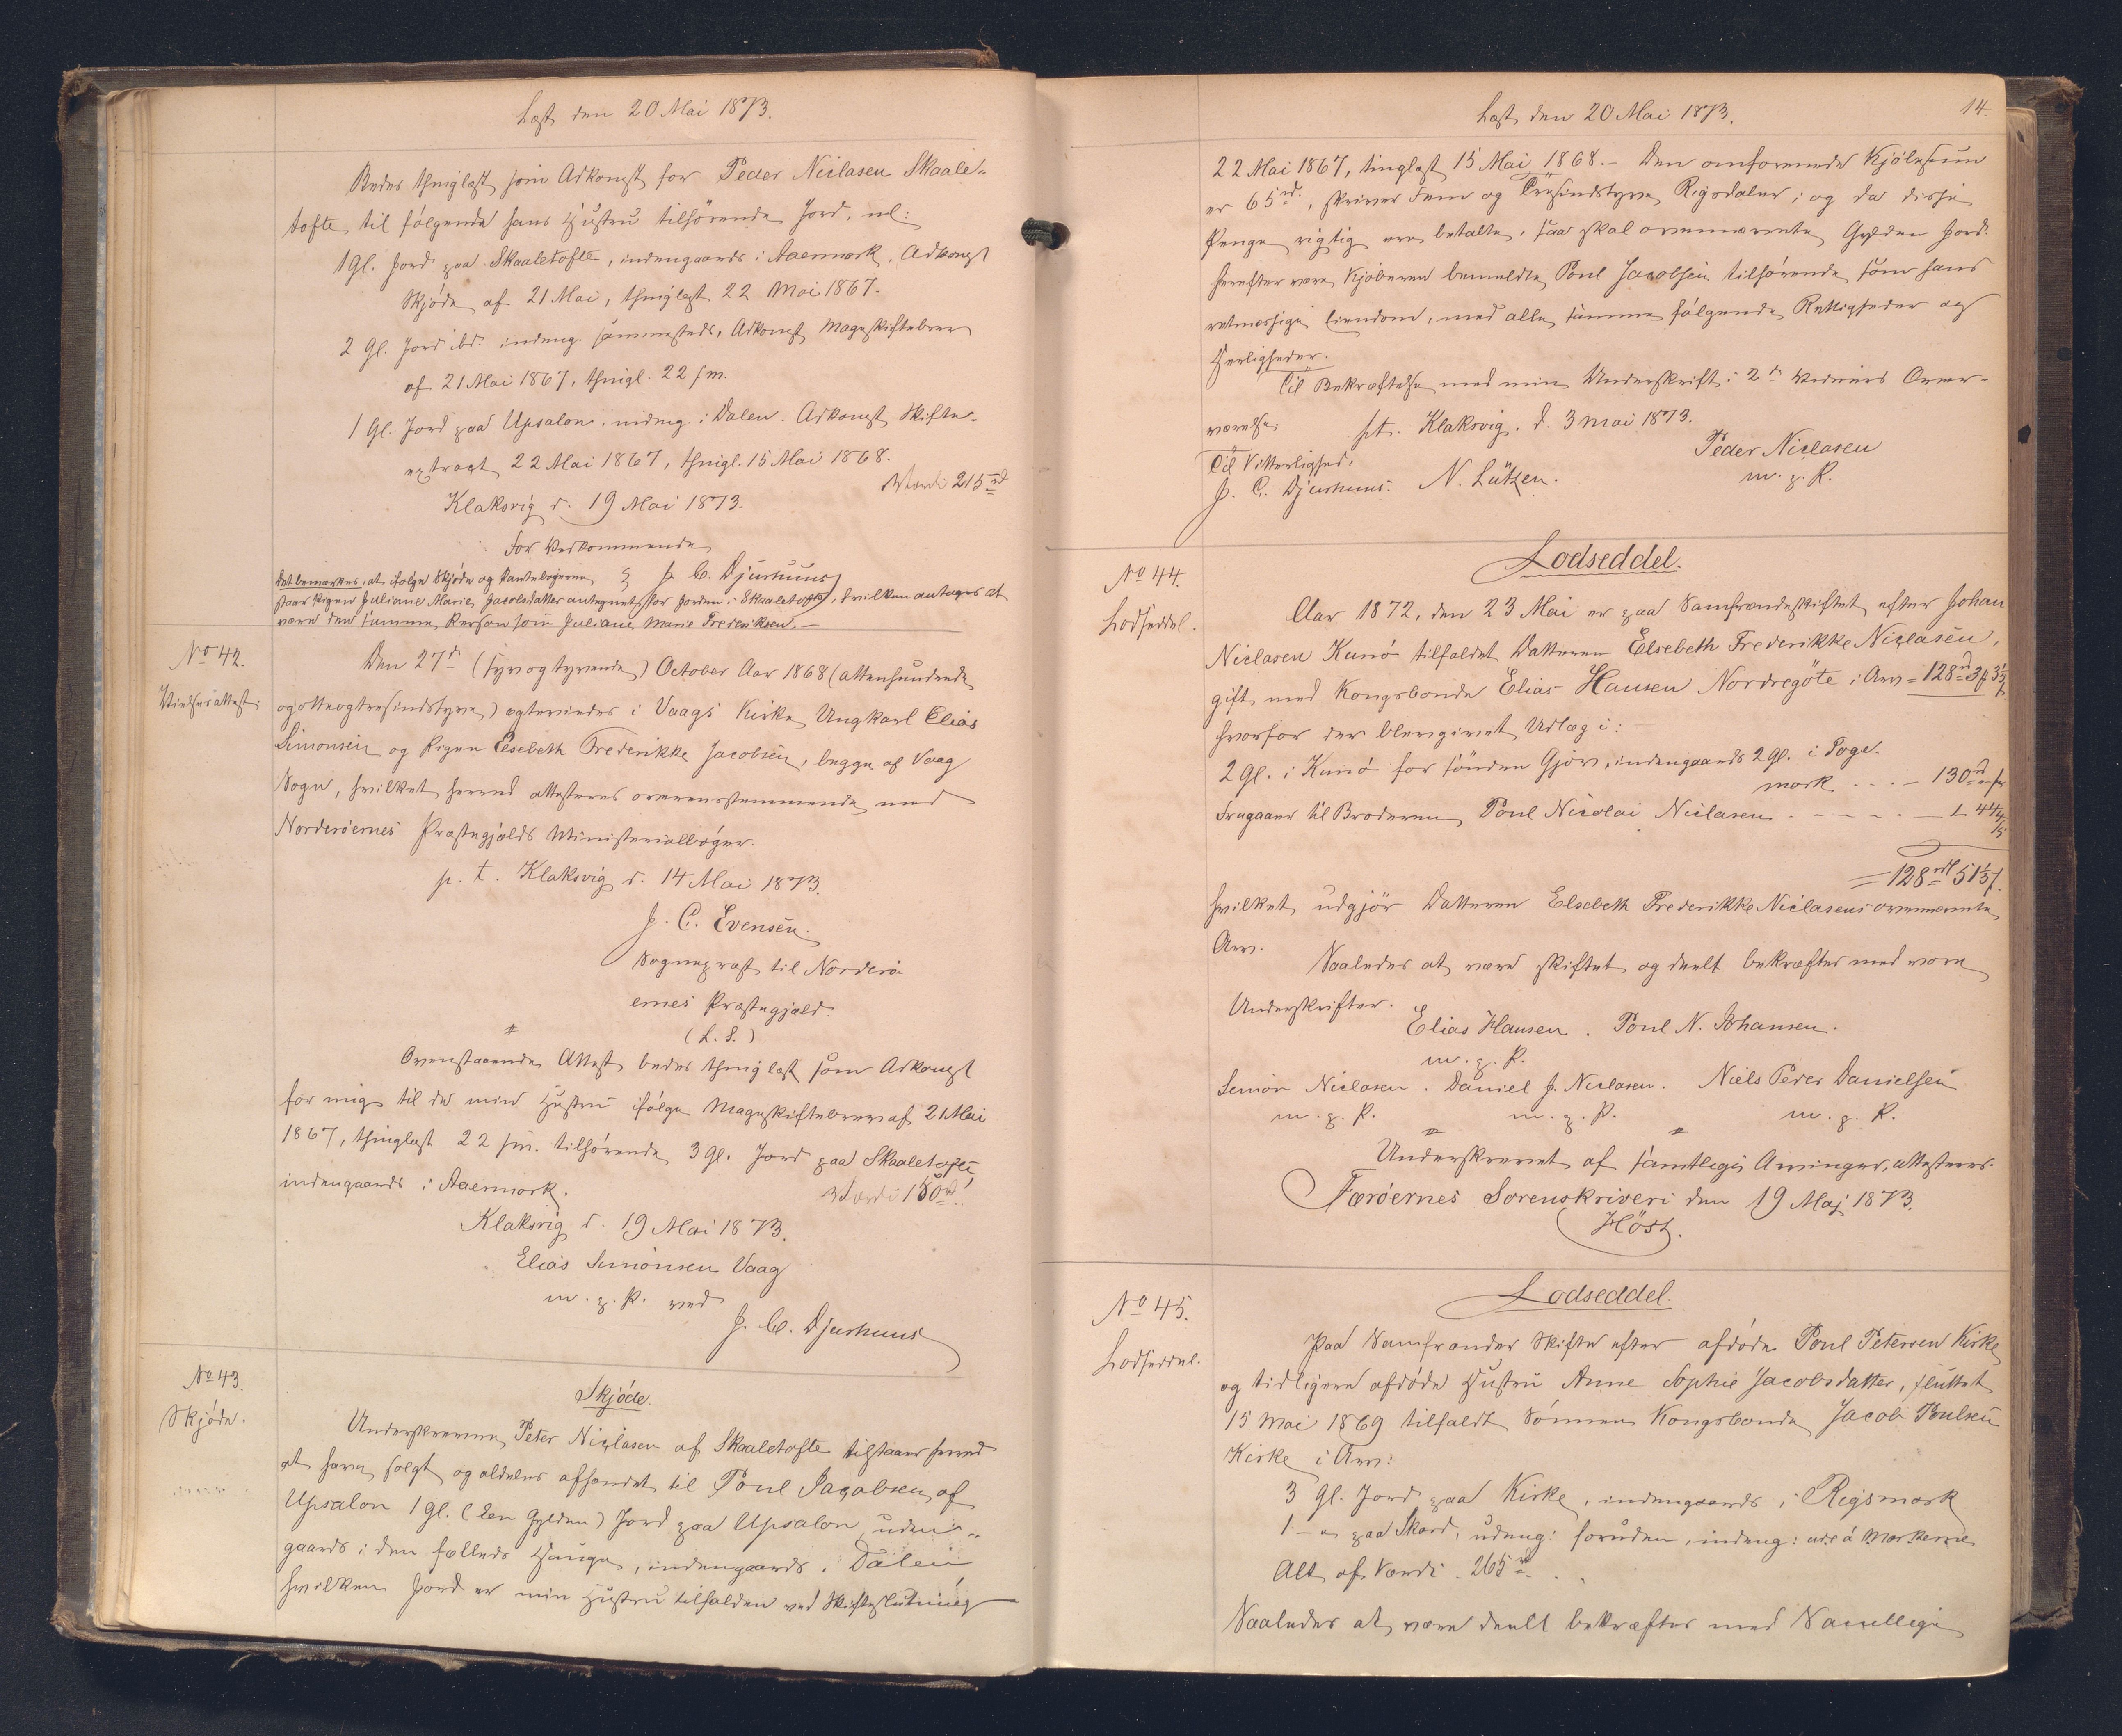 Læst den 20 Mai 1873.
Bedes thinglæst som Adkomst for Peder Niclasen Skaale-
tofte til følgende hans Hustru tilhørende Jord, nl:
1 Gl. Jord paa Skaaletofte, indengaards i Aaermork. Adkomst
Skjøde af 21 Mai, thinglæst 22 Mai 1867.
2 Gl. Jord ibd: indeng. sammesteds, Adkomst Mageskiftebrev
af 21 Mai 1867, thingl. 22 s.m.
1 Gl. Jord paa Upsalon, indeng. i Dalen. Adkomst Skifte-
extract 22 Mai 1867, thingl. 15 Mai 1868.
Værdi 215 rd
Klaksvig d. 19 Mai 1873.
For Vedkommende
J. C. Djurhuus
Det bemærkes, at ifølge Skjøde og Pantebøgerne
staar Pigen Juliane Marie Jacobsdatter antegnet for Jorden i Skaaletofte, hvilken antages at
være den samme Person som Juliane Marie Frederiksen. —
No 42.
Vielsesattest.
Den 27de (syvogtyvende) October Aar 1868 (attenhundrede
ogotteogtresindstyve) ægteviedes i Vaags Kirke Ungkarl Elias
Simonsen og Pigen Elsebeth Frederikke Jacobsen, begge af Vaag
Sogn, hvilket herved attesteres overensstemmende med
Norderöernes Præstegjælds Ministerialbøger.
p. t. Klaksvig d. 14 Mai 1873.
J. C. Evensen.
Sognepræst til Norderö-
ernes Præstegjæld.
(L. S.)
Ovenstaaende Attest bedes thinglæst som Adkomst
for mig til de min Hustru ifølge Mageskiftebrev af 21 Mai
1867, thinglæst 22 s.m. tilhørende 3 Gl. Jord paa Skaaletofte,
indengaards i Aaermork.
Værdi 150 rd.
Klaksvig d. 19 Mai 1873.
Elias Simonsen Vaag
m. p. P. ved
J. C. Djurhuus
No 43.
Skjøde.
Skjöde.
Underskrevne Peter Niclasen af Skaaletofte tilstaaer herved
at have solgt og aldeles afhændet til Poul Jacobsen af
Upsalon 1 Gl. (een Gylden) Jord paa Upsalon, uden-
gaards i den fælleds Hauge, indengaards i Dalen
hvilken Jord er min Hustru tilfalden ved Skifteslutning
Læst den 20 Mai 1873.
14.
22 Mai 1867, tinglæst 15 Mai 1868. — Den omforenede Kjøbesum
er 65 rd., skriver Fem og Tresindstyve Rigsdaler; og da disse
Penge rigtig ere betalte, saa skal ovennævnte Gylden Jord
herefter være Kjøberen bemeldte Poul Jacobsen tilhørende som hans
retmæssige Eiendom, med alle samme følgende Rettigheder og
Herligheder.
Til Bekræftelse med min Underskrift i 2de Vidners Over-
værelse.
pt. Klaksvig. d. 3 Mai 1873.
Peder Niclasen
m. p. P.
Til Vitterlighed:
J. C. Djurhuus. N. Lützen.
No 44.
Lodseddel.
Lodseddel.
Aar 1872, den 23 Mai er paa Samfrændeskiftet efter Johan
Niclasen Kunö tilfaldet Datteren Elsebeth Frederikke Niclasen,
gift med Kongsbonde Elias Hansen Nordregöte i Arv = 128 rd
hvorfor der blev givet Udlæg i:
2 Gl. i Kunö for sönden Gjov, indengaards 2 gl. i Toge-
mork . . . — 130 rd
Fragaaer til Broderen Poul Nicolai Niclasen - - - - -
= 128 rd
hvilket udgjör Datteren Elsebeth Frederikke Niclasens ovennævnte
Arv.
Saaledes at være skiftet og deelt bekræftes med vore
Underskrifter.
Elias Hansen. Poul N. Johansen.
m. p. P.
Simon Niclasen. Daniel J. Niclasen. Niels Peder Danielsen
m. p. P. m. p. P. m. p. P.
Underskrevet af samtlige Arvinger, attesteres.
Færöernes Sorenskriveri den 19 Maj 1873.
Höst.
No 45.
Lodseddel.
Lodseddel.
Paa Samfrænder Skifte efter afdöde Poul Petersen Kirke
og tidligere afdöde Hustru Anne Sophie Jacobsdatter, sluttet
15 Mai 1869 tilfaldt Sönnen Kongsbonde Jacob Poulsen
Kirke i Arv:
3 Gl. Jord paa Kirke, indengaards i Regsmork
1 — " paa Skard, udeng: foruden, indeng: Morkerne
Alt af Værdi 265 rd.
Saaledes at være deelt bekræftes med